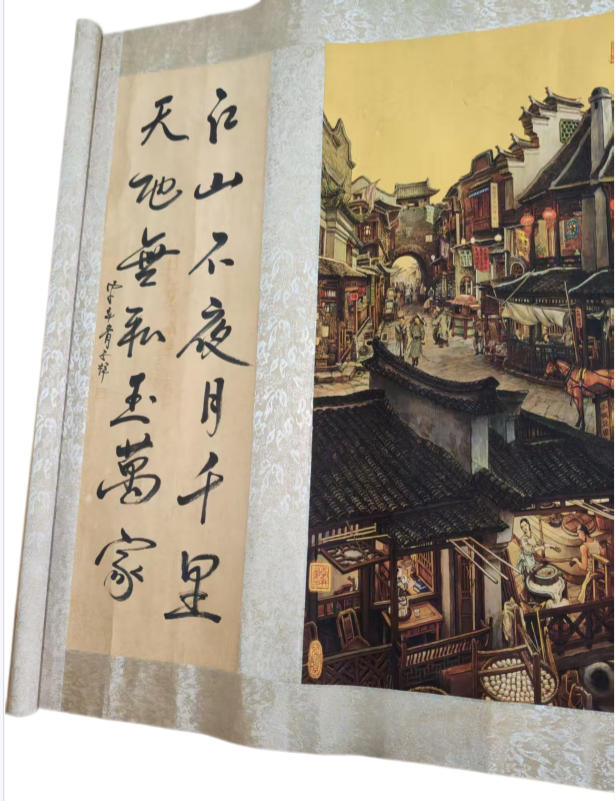 江山不夜月千里
天地無私玉萬家